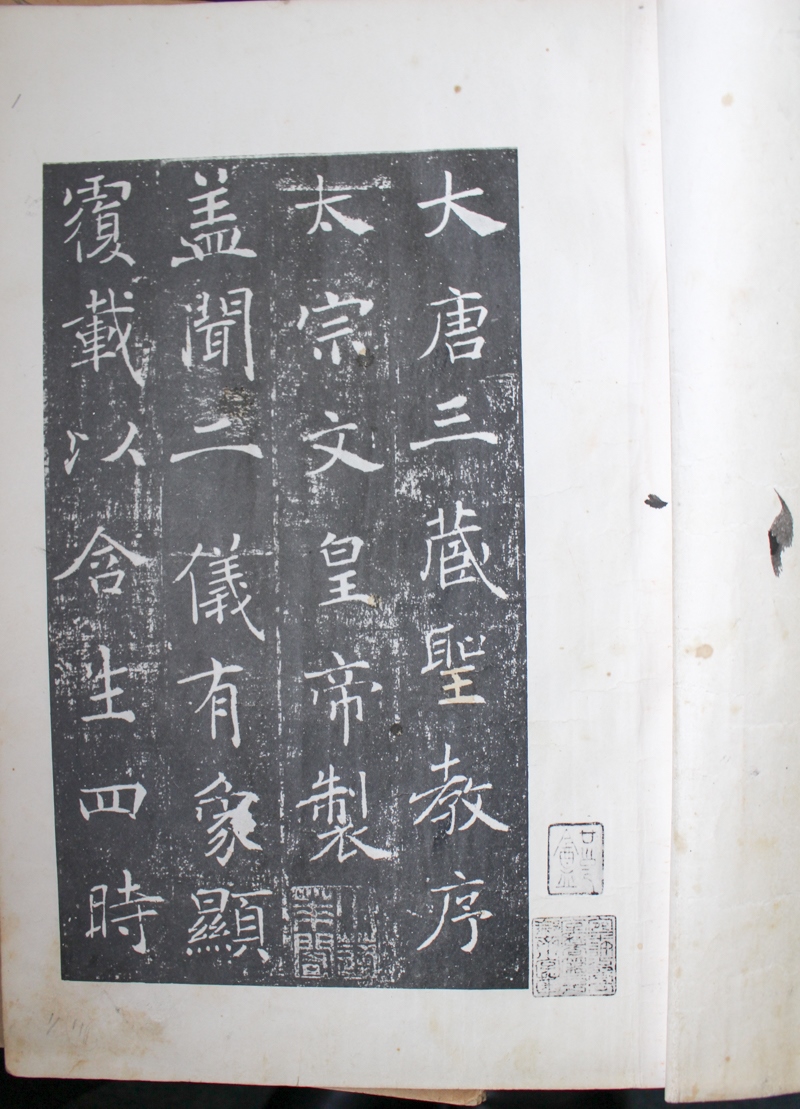 大唐三藏聖教序
太宗文皇帝製
盖聞二儀有象顯
覆載以含生四時